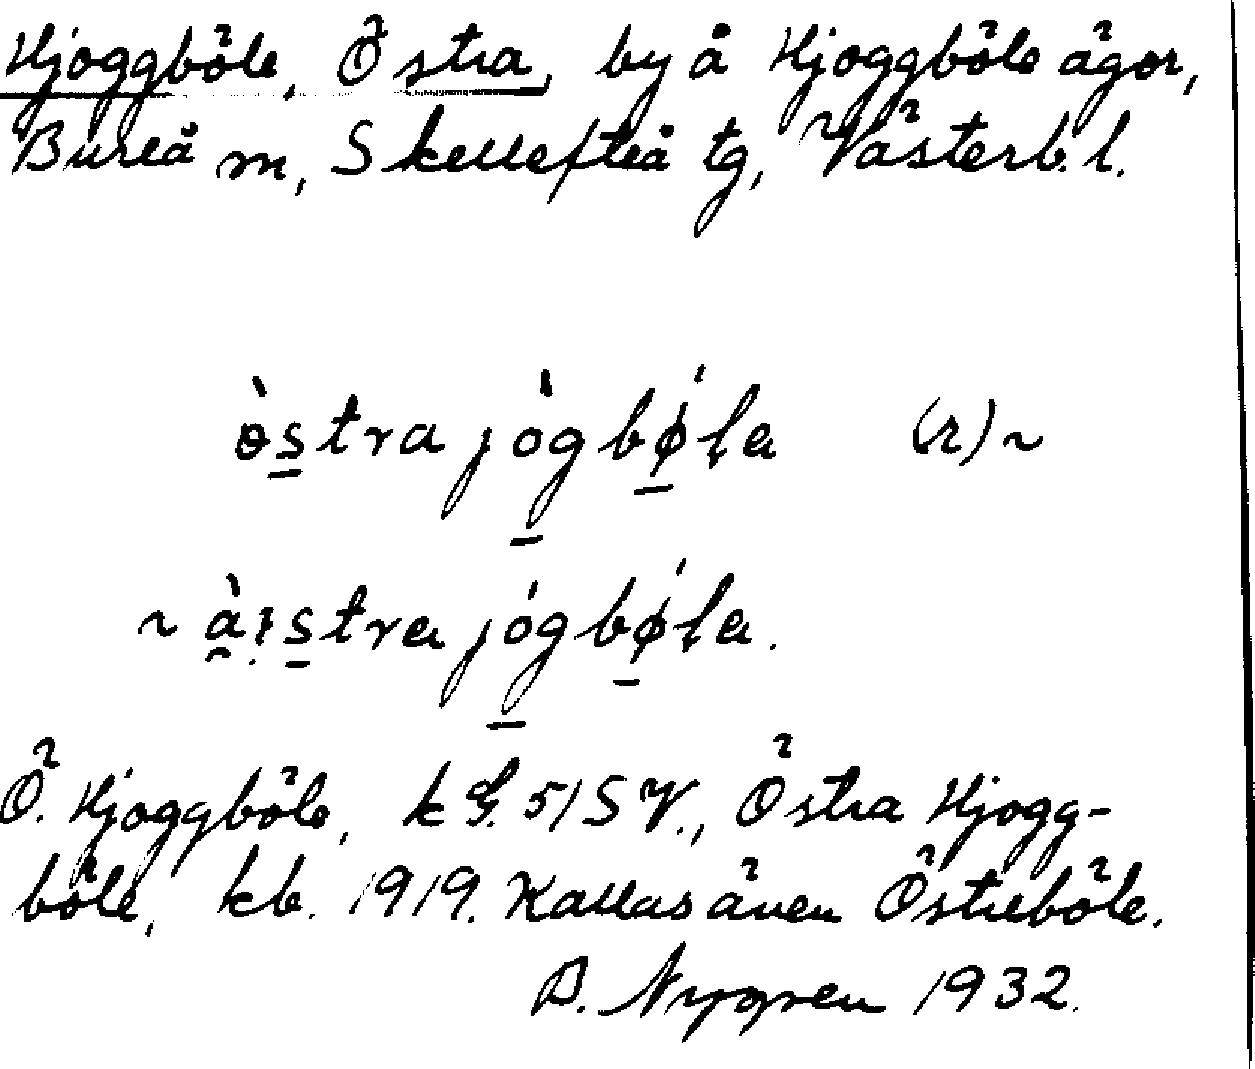 Hjoggböle, Östra, by å Hjoggböle ägor,
Bureå m, Skellefteå tg, Västerb. l.
ò̀s̲tra jògb̲ǿla (r) ~
~ àːs̲tra jógbǿla.
Ö. Hjoggböle, k G. 51 SV., Östra Hjogg-
böle, kb. 1919. Kallas även Östreböle.
D. Nygren 1932.